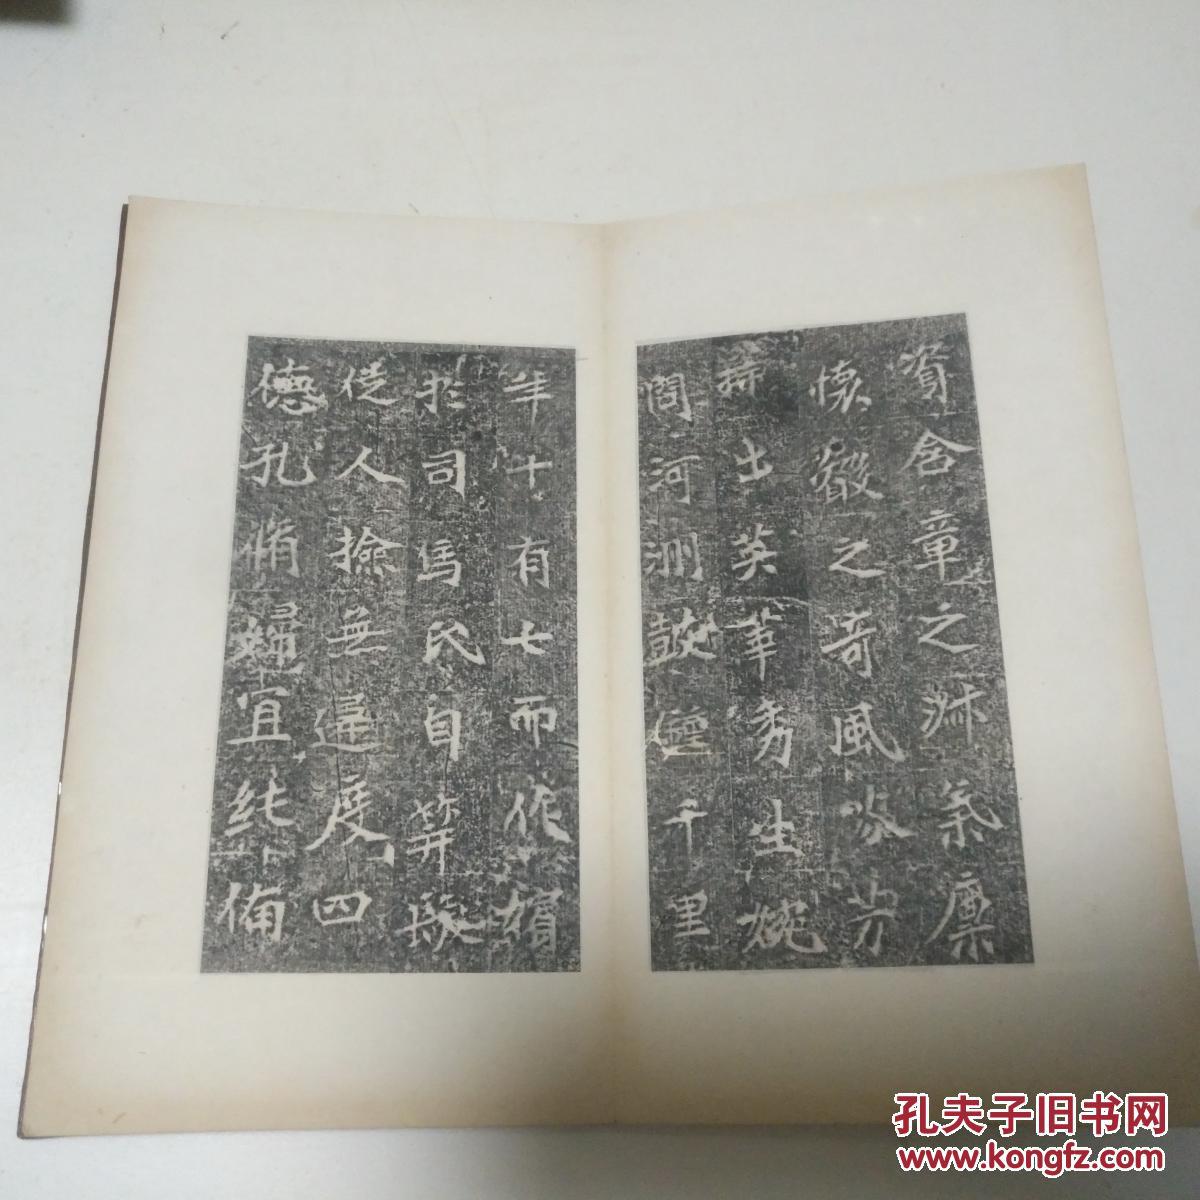 資含章之淑氣稟
懷叡之奇風芬芳
特出英華秀生婉
問河洲鼓鍾千里
年十有七而作嬪
於司馬氏自笄髮
從人撿無違度四
德孔脩婦宜純備
孔夫子旧书网
www.kongfz.com